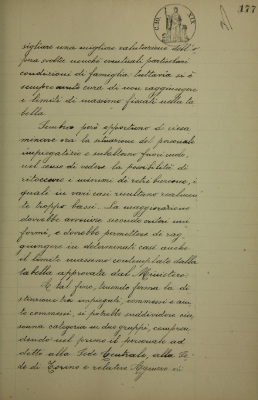 177
sigliare una migliore valutazione dell'o
pera svolta nonché eventuali particolari
condizioni di famiglia. Tuttavia si è
sempre avuto cura di non raggiungere
i limiti di massimo fissati nella ta
bella.
Sembra però opportuno di riesa
minare ora la situazione del personale
impiegatizio e subalterno fuori ruolo,
nel senso di vedere la possibilità di
ritoccare i minimi di retribuzione, i
quali in vari casi risultano realmen
te troppo bassi. La maggiorazione
dovrebbe avvenire secondo criteri uni
formi, e dovrebbe permettere di rag
giungere in determinati casi anche
il limite massimo contemplato dalla
tabella approvata dal Ministero.
A tal fine, tenendo ferma la di
stinzione tra impiegati, commessi e au
to commessi, si potrebbe suddividere cia
scuna categoria in due gruppi, compren
dendo nel primo il personale ad
detto alla Sede Centrale, alla Se
de di Torino e relative Agenzie di